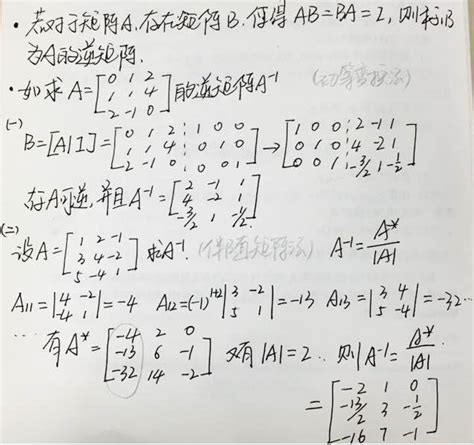 • 若对于矩阵A,存在矩阵B.使得 AB=BA=I,则称B
为A的逆矩阵.
• 如求 A=[0 1 2; 1 1 4; 2 -1 0]的逆矩阵A⁻¹ (初等变换法)
(一) B=[A|I]=[0 1 2 ¦ 1 0 0; 1 1 4 ¦ 0 1 0; 2 -1 0 ¦ 0 0 1]→[1 0 0 ¦ 2 -1 1; 0 1 0 ¦ 4 -2 1; 0 0 1 ¦ -3/2 1 -1/2]
存A可逆,并且A⁻¹=[2 -1 1; 4 -2 1; -3/2 1 -1/2]
(二) 设A=[1 2 -1; 3 4 -2; 5 -4 1] 求A⁻¹. (伴随矩阵法) A⁻¹=A*/|A|
A₁₁=|4 -2; -4 1|=-4 A₁₂=(-1)¹⁺²|3 -2; 5 1|=-13 A₁₃=|3 4; 5 -4|=-32...
... 有A*=[-4 2 0; -13 6 -1; -32 14 -2] 又有 |A|=2.. 则A⁻¹=A*/|A|
=[-2 1 0; -13/2 3 -1/2; -16 7 -1]